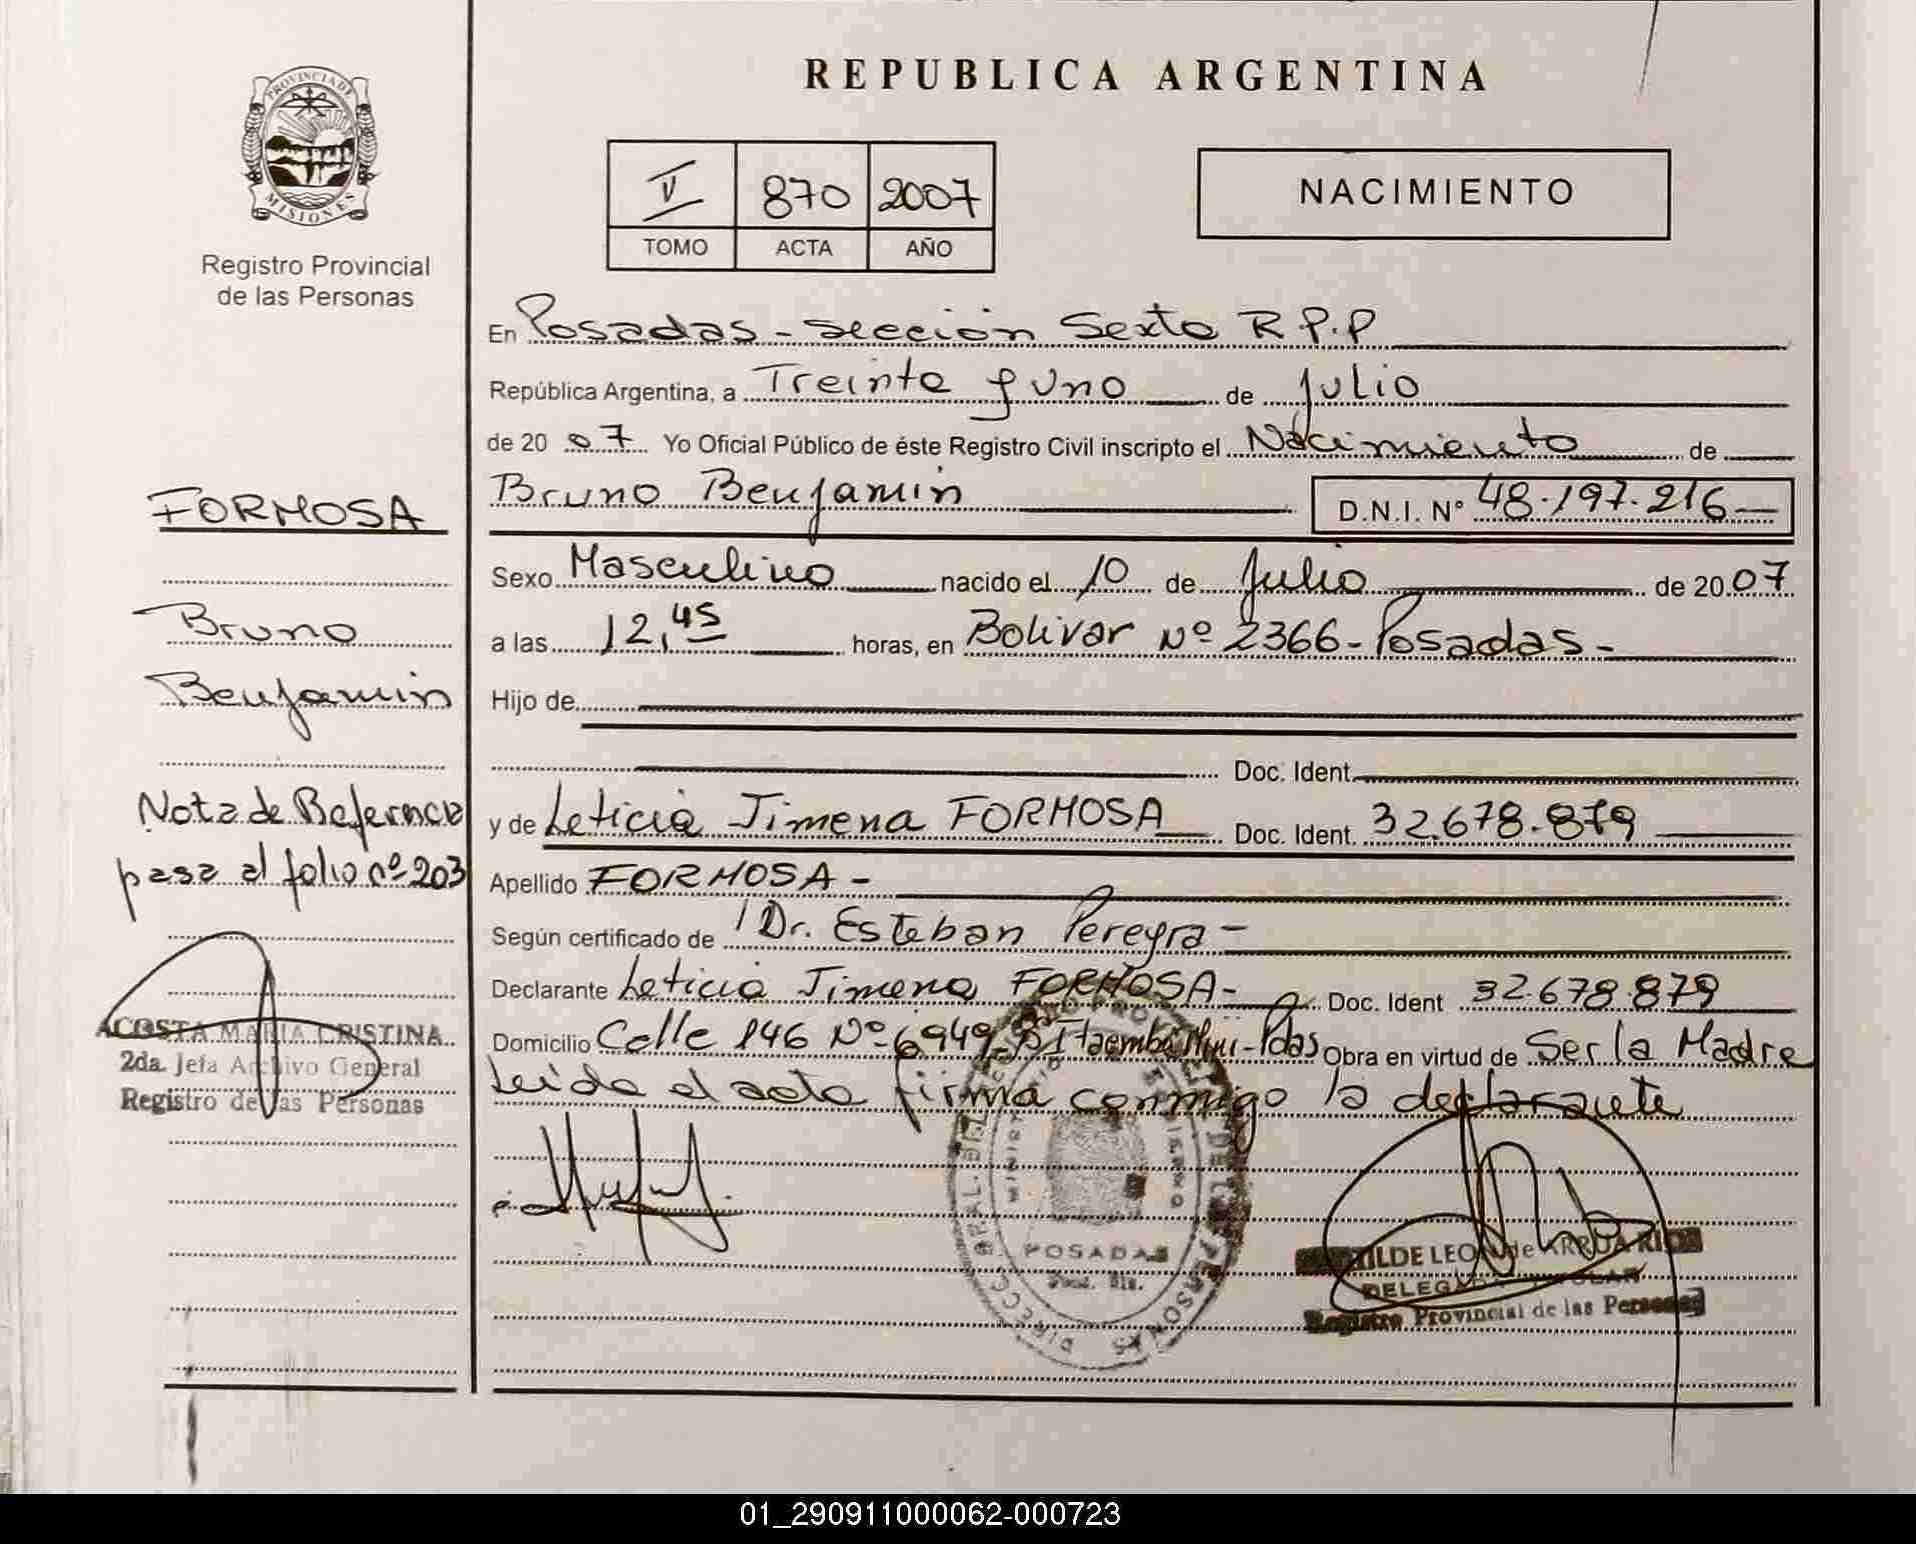 PROVINCIA DE
MISIONES
Registro Provincial
de las Personas
FORMOSA
Bruno
Benjamin
Nota de Referencia
pasa al folio nº 203
ACOSTA MARIA CRISTINA
2da. Jefa Archivo General
Registro de las Personas
REPUBLICA ARGENTINA
V 870 2007
TOMO ACTA AÑO
NACIMIENTO
En Posadas - Sección Sexta R.P.P
República Argentina, a Treinta y Uno de Julio
de 20 07 Yo Oficial Público de éste Registro Civil inscripto el Nacimiento de
Bruno Benjamin D.N.I. Nº 48.197.216
Sexo Masculino nacido el 10 de Julio de 20 07
a las 12,45 horas, en Bolivar Nº 2366 - Posadas -
Hijo de
Doc. Ident.
y de Leticia Jimena FORMOSA Doc. Ident. 32.678.879
Apellido FORMOSA -
Según certificado de Dr. Esteban Pereyra -
Declarante Leticia Jimena FORMOSA - Doc. Ident 32.678.879
Domicilio Calle 146 Nº 6949 Bº Itaembé Mini - Pdas Obra en virtud de Ser la Madre
Leida el acta firma conmigo la declarante
POSADAS
DELEGADA TITULAR
Registro Provincial de las Personas
01_290911000062-000723